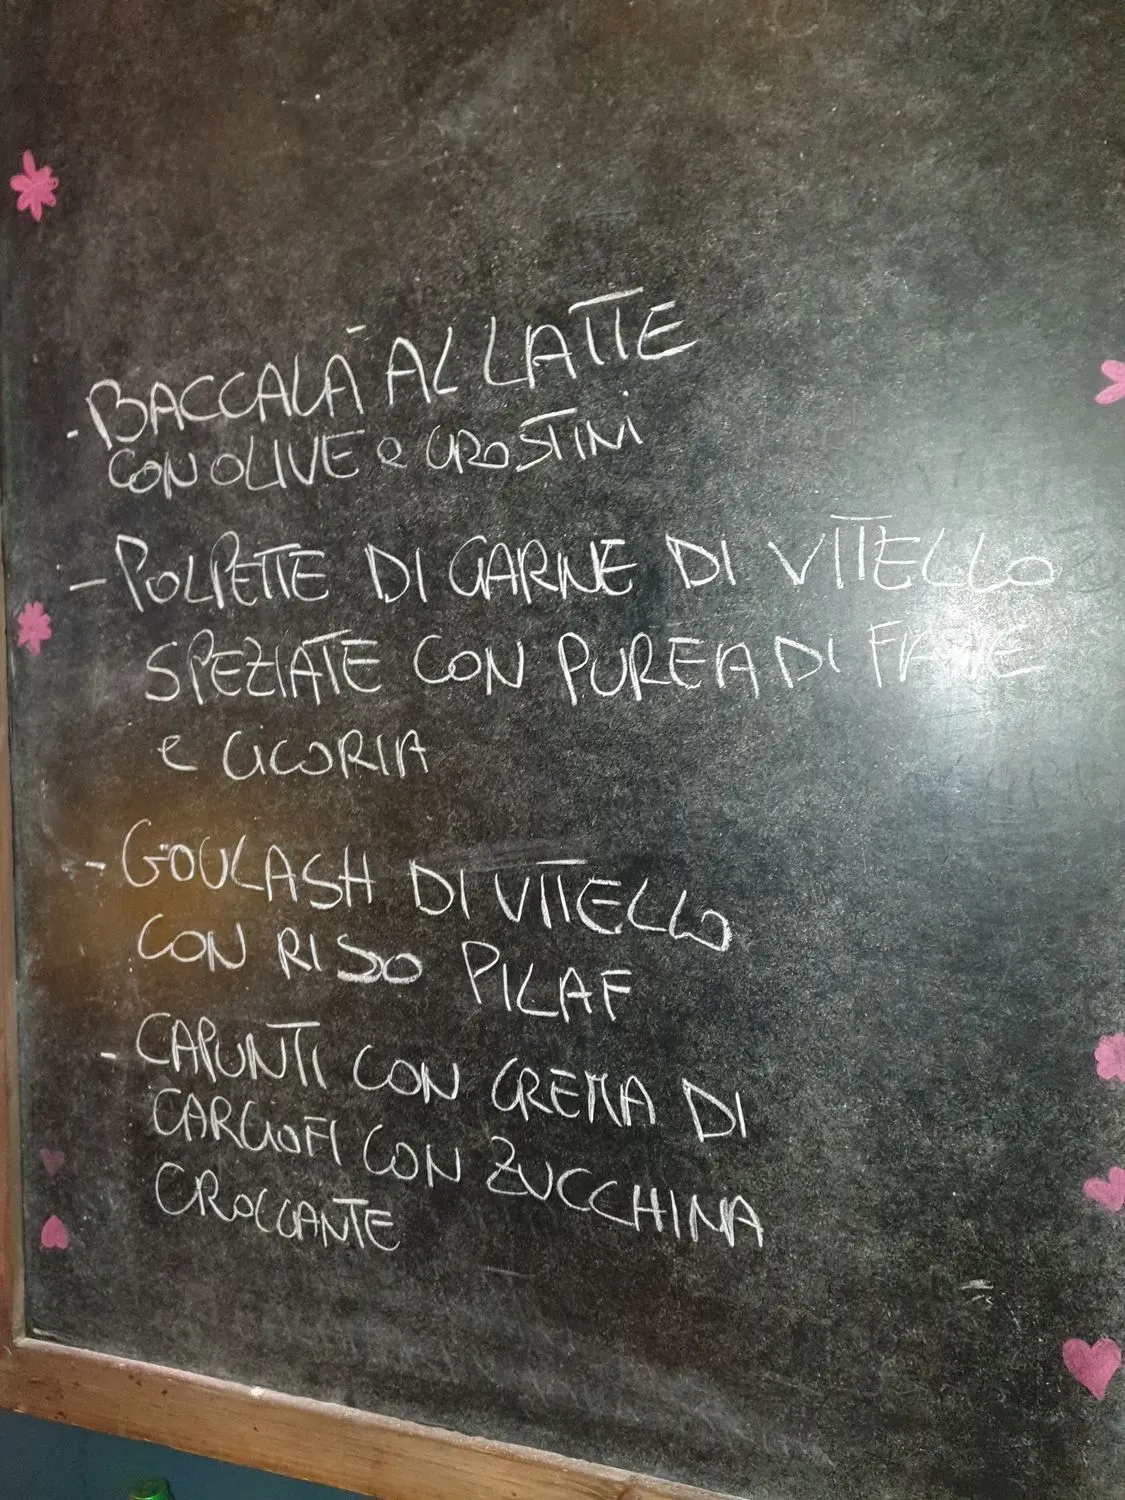 - BACCALÀ AL LATTE
CON OLIVE e CROSTINI
- POLPETTE DI CARNE DI VITELLO
SPEZIATE CON PUREA DI
e CICORIA
- GOULASH DI VITELLO
CON RISO PILAF
- CAPUNTI CON CREMA DI
CARCIOFI CON ZUCCHINA
CROCCANTE